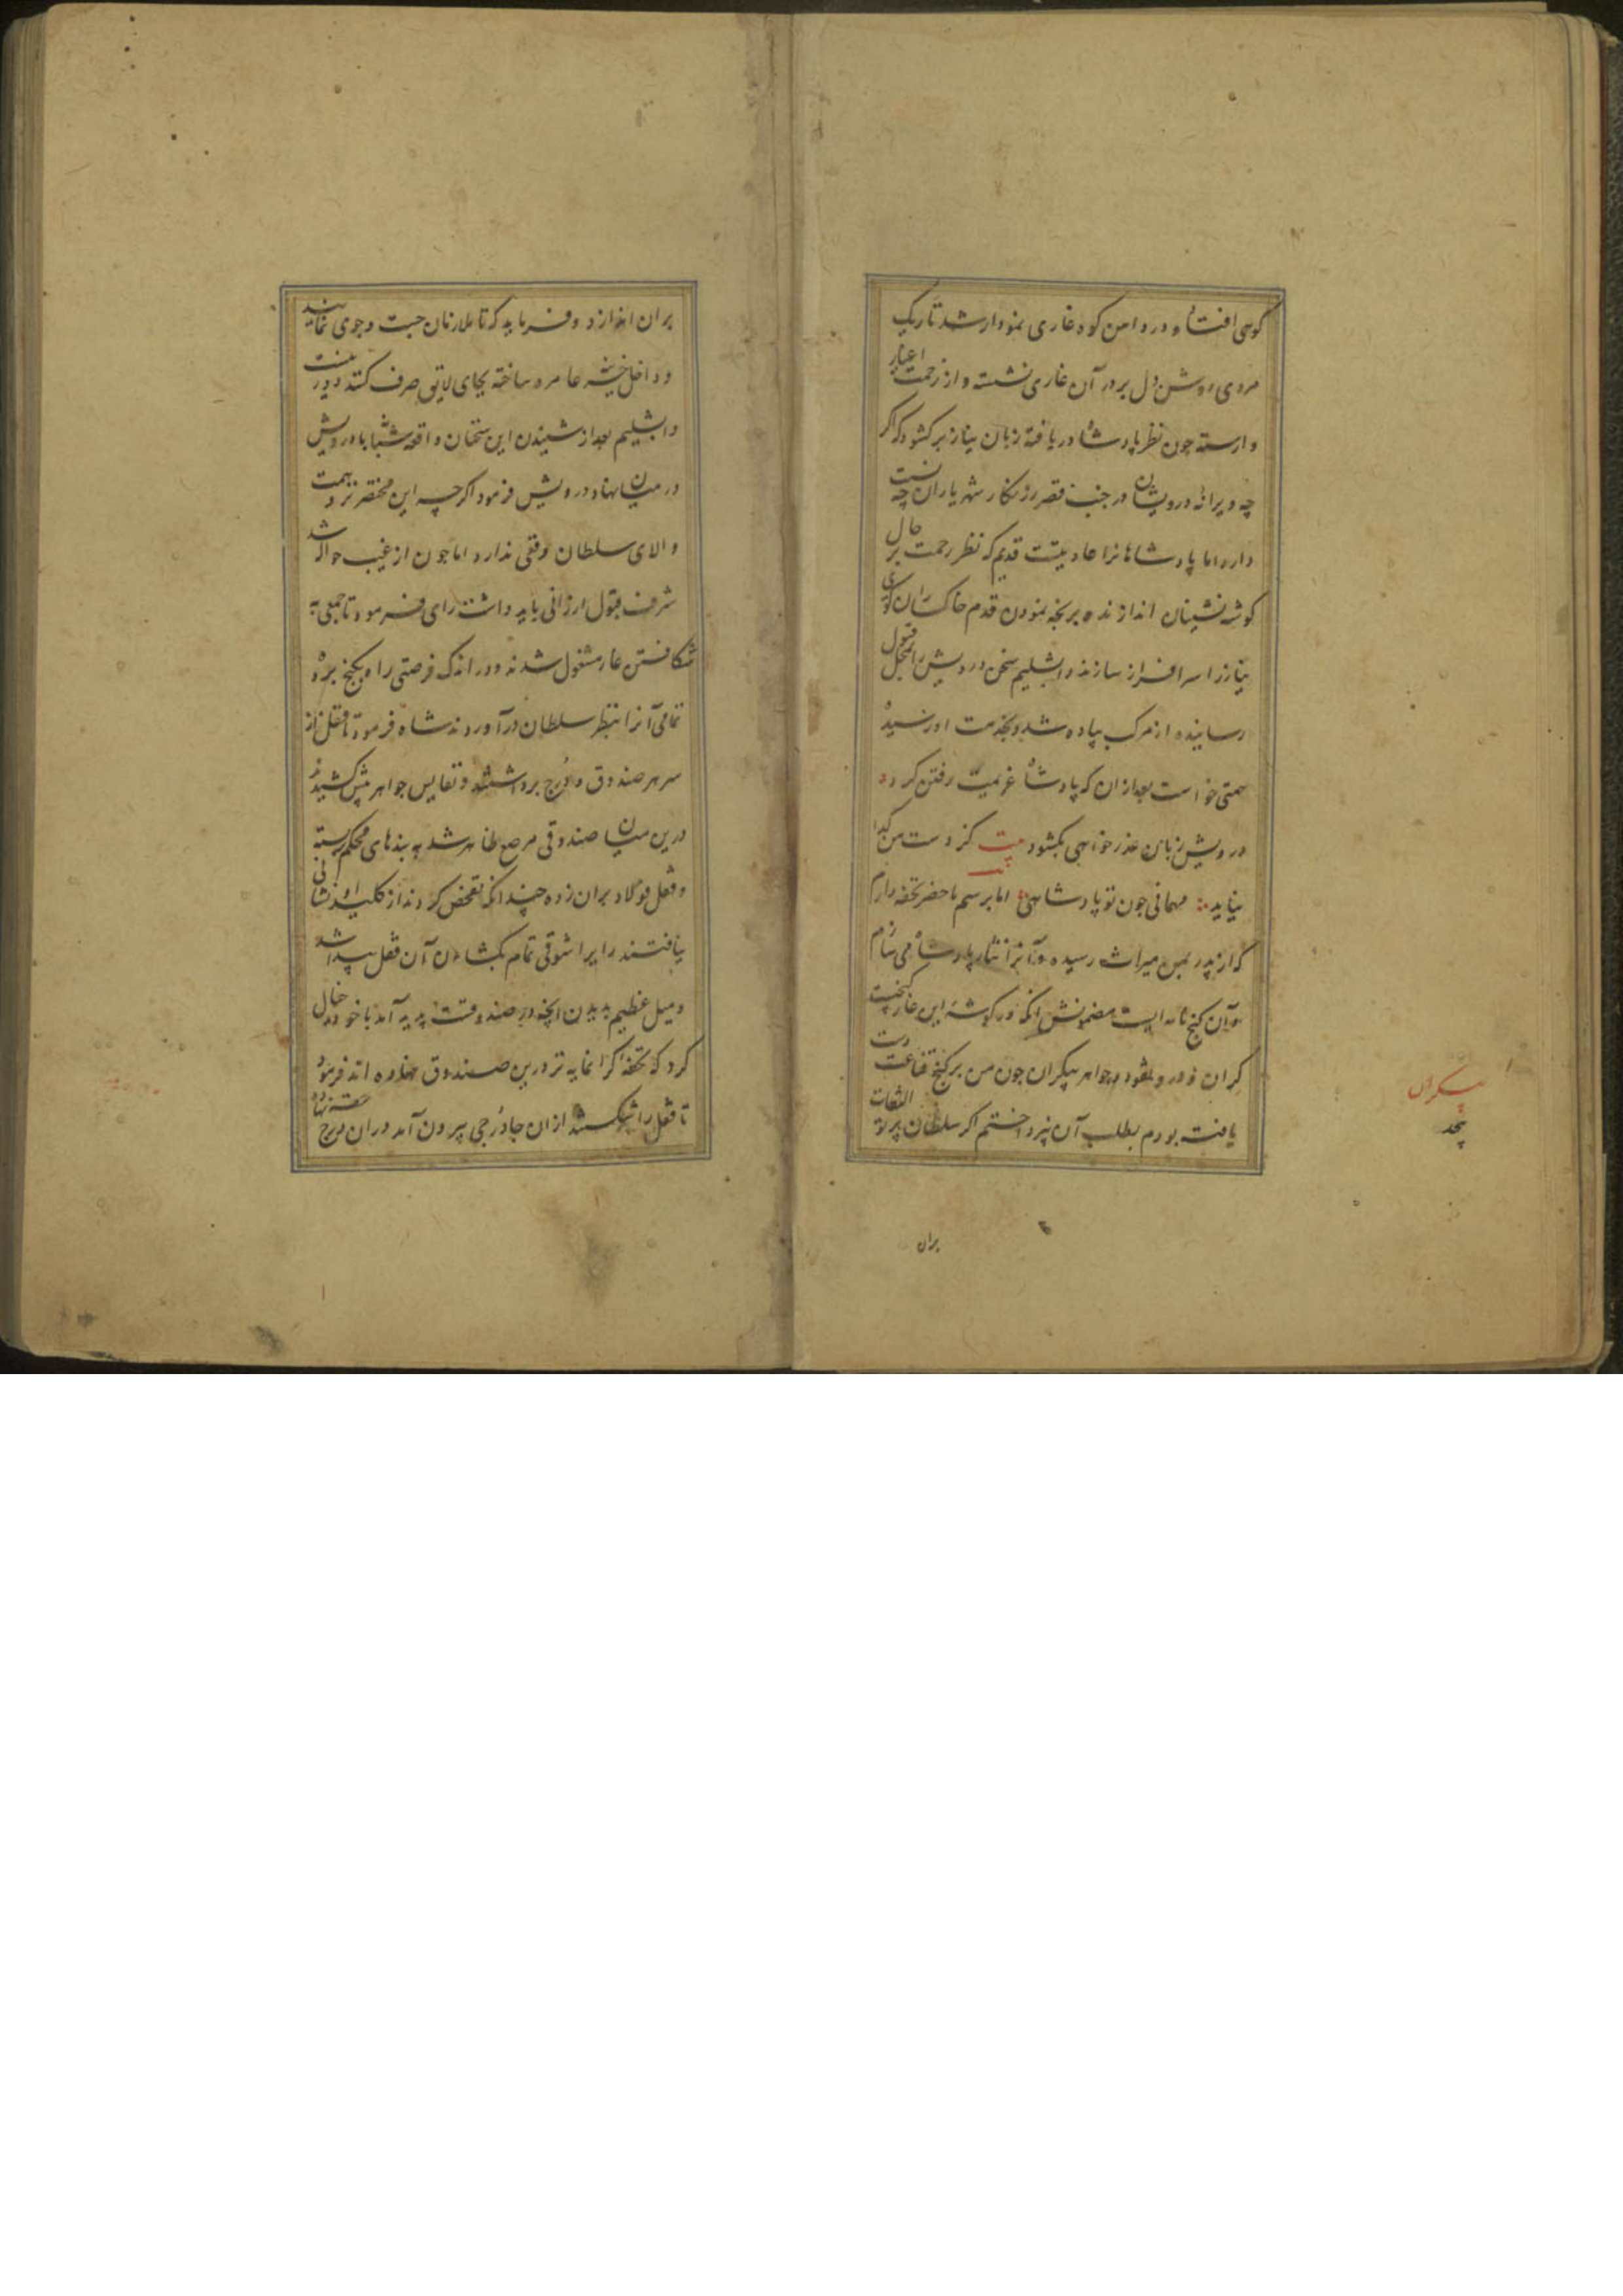 کوهی افتاد و در دامن کوه غاری نمودار شد تاریک
مردی روشن دل بر در آن غاری نشسته و از زحمت اغیار
وارسته چون نظر پادشاه دریافته زبان نیاز برکشود که اکر
چه ویرانه درویشان در جنب قصر زرنکار شهریاران چه نسبت
دارد اما پادشاهانرا عادتیست قدیم که نظر رحمت بر حال
کوشه نشینان اندازند و برنجه نمودن قدم خاکساران کوی
نیاز را سرافراز سازند دابشلیم سخن درویش را بمحل قبول
رسانیده از مرکب پیاده شد و بخدمت او رسیده
همتی خواست بعد از ان که پادشاه عزیمت رفتن کرد
درویش زبان عذر خواهی بکشود بیت کز دست من کدا
نیاید مهمانی چون تو پادشاهی اما برسم ما حضر تحفه دارم
که از پدر بمن میراث رسیده و آنرا نثار پادشاه می سازم
و آن کنج نامه ایست مضمونش انکه در کوشه این غار کنجیست
کران و در و نقود و جواهر بیکران چون من بر کنج قناعت دست
یافته بودم بطلب آن نپرداختم اکر سلطان پرتو التفات
بیکران
بران
بران اندازد و فرماید که تا ملازمان جست و جوی نمایند
و داخل خزینه عامره ساخته بجای لایق صرف کنند دور نیست
دابشلیم بعد از شنیدن این سخنان واقعه شبانه با درویش
در میان نهاد درویش فرمود اکر چه این مختصر نزد همت
والای سلطان وقعی ندارد اما چون از غیب حواله شد
شرف قبول ارزانی باید داشت رای فرمود تا جمعی به
شکافتن غار مشغول شدند و در اندک فرصتی راه بکنج برده
تمامی آنرا بنظر سلطان در آوردند شاه فرمود تا قفل از
سر هر صندوق و درج برداشتند و نفایس جواهر پیش کشیدند
درین میان صندوقی مرصع ظاهر شد به بندهای محکم بسته
و قفل فولاد بران زده چندانکه تفحص کردند از کلید او نشانی
نیافتند رایرا شوقی تمام بکشادن آن قفل پیدا شد
و میل عظیم بدیدن انچه در صندوقست پدید آمد با خود خیال
کرد که تحفه کرانمایه تر درین صندوق نهاده اند فرمود
تا قفل را شکستند ازان جا درجی بیرون آمد دران درج حقه نهاده